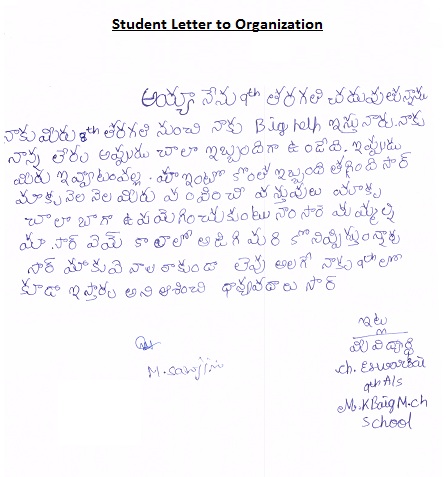 Student Letter to Organization
అయ్యా నేను 9th తరగతి చదువుతున్నాను
నాకు మీరు 8th తరగతి నుంచి నాకు Big help ఇస్తున్నారు. నాకు
నాన్న లేరు అప్పుడు చాలా ఇబ్బందిగా ఉండేది. ఇప్పుడు
మీరు ఇవ్వటంవల్ల. మా ఇంట్లో కొంత ఇబ్బంది తగ్గింది సార్
మాకు నెల నెల మీరు పంపించే వస్తువులు మాకు
చాలా బాగా ఉపయోగించుకుంటున్నాం సార్ మమ్మల్ని
మా సార్ ఏమే కావాలో అడిగి మరి కొనిస్తున్నారు
సార్ మాకు ఏ లేవు అలాగే నాకు 9th లో
కూడా ఇస్తారు అని ఆశించి సార్
ఇట్లు
మీ విద్యార్థి
ch. Eswarrao
9th A/s
School